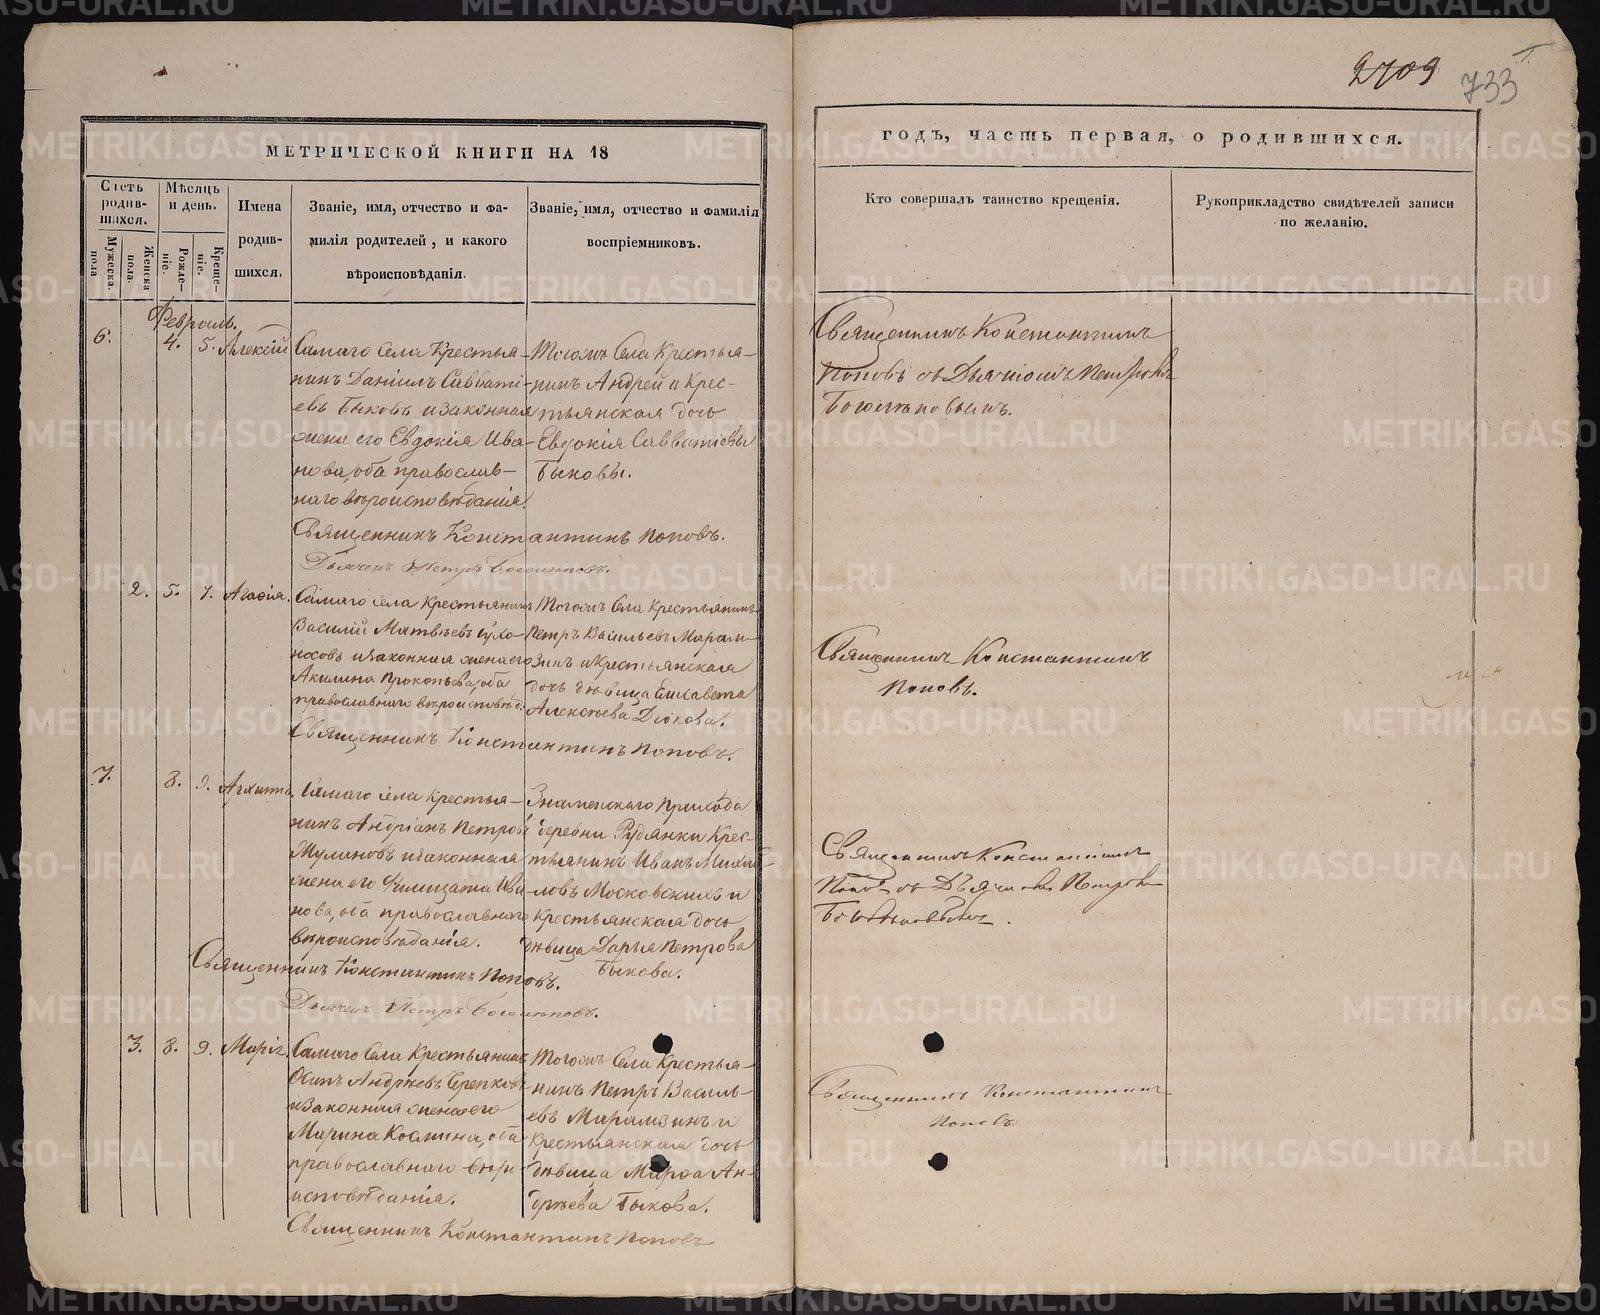 2709
733
МЕТРИЧЕСКОЙ КНИГИ НА 18
годъ, часть первая, о родившихся.
Счетъ родившихся.
Мѣсяцъ и день.
Имена родившихся.
Званіе, имя, отчество и фамилія родителей, и какого вѣроисповѣданія.
Званіе, имя, отчество и фамилія воспріемниковъ.
Кто совершалъ таинство крещенія.
Рукоприкладство свидѣтелей записи по желанію.
Мужеска пола
Женска пола.
Рожденіе.
Крещеніе.
Февраль.
6. 4. 5. Алексій
Самаго Села Крестья-
нинъ Даніилъ Саввати-
евъ Быковъ и законная
жена его Евдокія Ива-
нова, оба православ-
наго вѣроисповѣданія.
Тогожъ Села Крестья-
нинъ Андрей и Крес-
тьянская дочь
Евдокія Савватіевы
Быковы.
Священникъ Константинъ
Поповъ съ Дьячкомъ Петромъ
Священникъ Константинъ Поповъ.
Дьячекъ Петръ
2. 5. 7. Агафія.
Самаго села Крестьянинъ
Василій Матвѣевъ Сухо-
носовъ и законная жена его
Акилина Прокопьева, оба
православнаго вѣроисповѣд.
Тогожъ Села Крестьянинъ
Петръ Васильевъ Марам-
зинъ и Крестьянская
дочь дѣвица Елисавета
Алексѣева Дюкова.
Священникъ Константинъ
Поповъ.
Священникъ Константинъ Поповъ.
7. 8. 9.
Самаго села Крестья-
нинъ Андріанъ Петровъ
и законная
жена его Филицата Ива-
нова, оба православнаго
вѣроисповѣданія.
Знаменскаго прихода
деревни Рудянки Крес-
тьянинъ Иванъ Михай-
ловъ Московскихъ и
Крестьянская дочь
дѣвица Дарья Петрова
Быкова.
Священникъ Константинъ
Поповъ съ Дьячкомъ Петромъ
Священникъ Константинъ Поповъ.
Дьячекъ Петръ
3. 8. 9. Марія.
Самаго Села Крестьянинъ
Осипъ Андреевъ Черепковъ
и законная жена его
Марина Космина, оба
православнаго вѣро-
исповѣданія.
Тогожъ Села Крестья-
нинъ Петръ Василь-
евъ Марамзинъ и
Крестьянская дочь
дѣвица Марфа Ан-
дреева Быкова.
Священникъ Константинъ
Поповъ.
Священникъ Константинъ Поповъ
METRIKI.GASO-URAL.RU